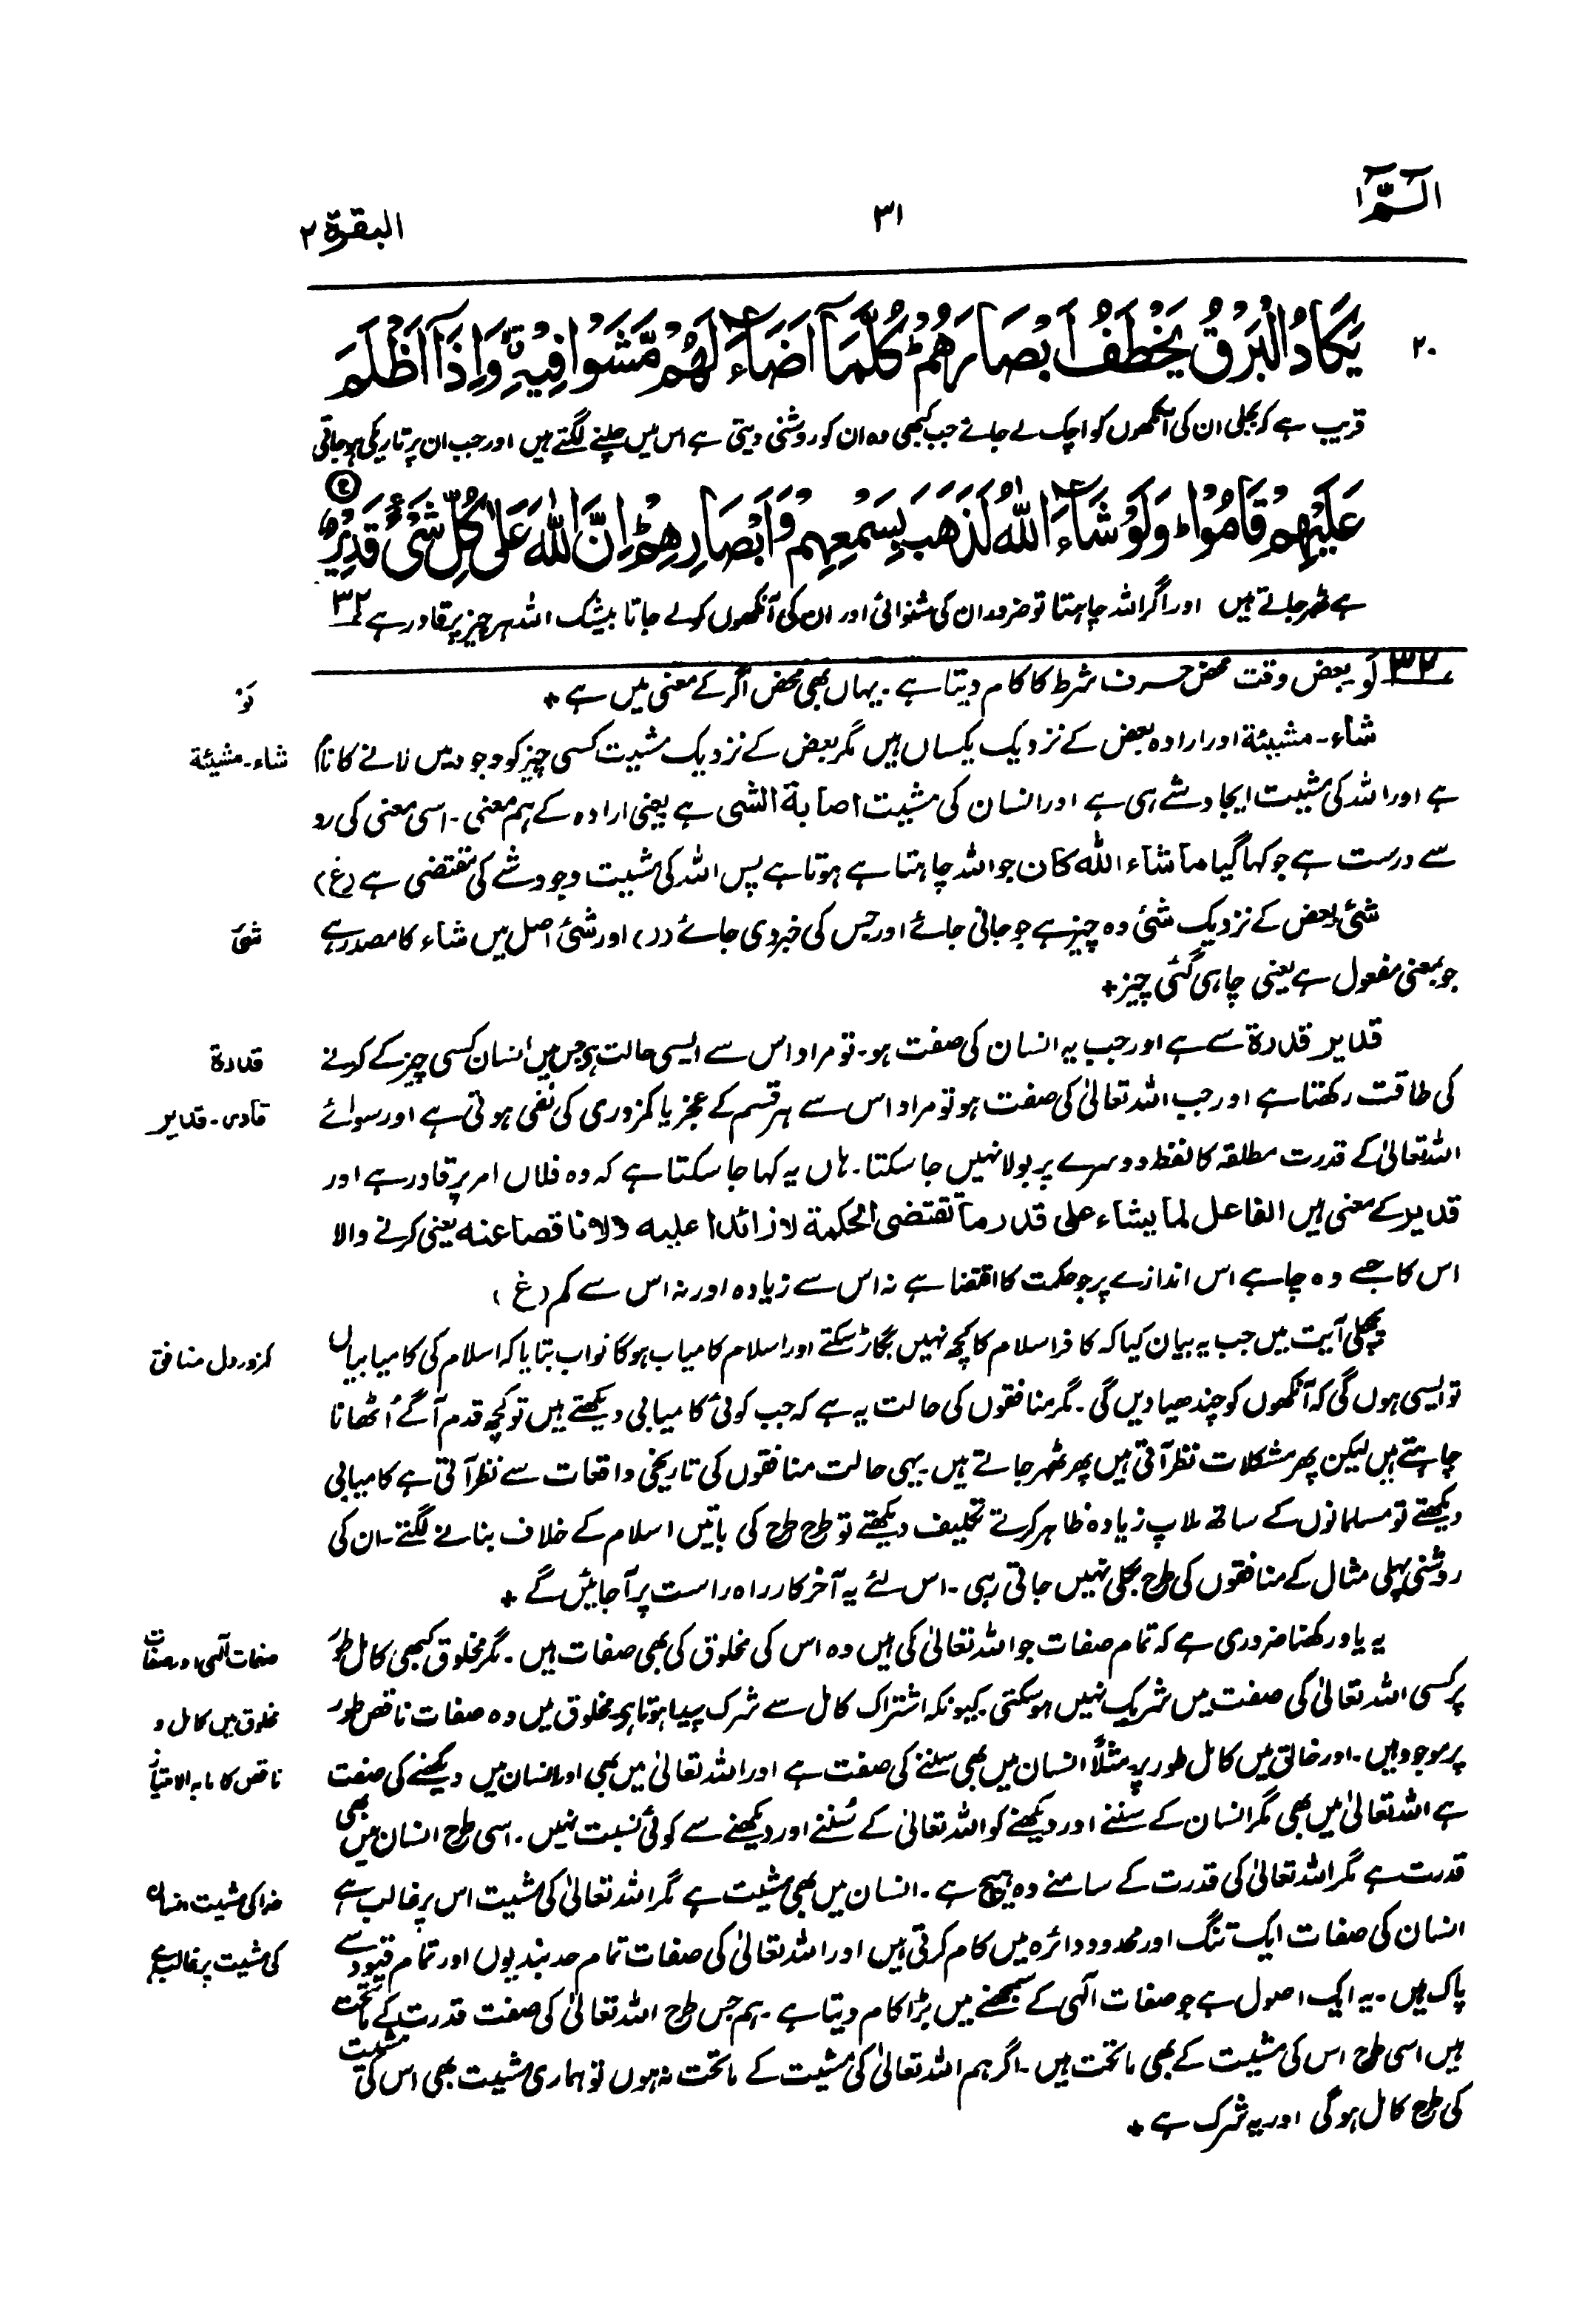 الٓمّٓ ١
٣١
البقرة ٢
٢٠
يَكَادُ الْبَرْقُ يَخْطَفُ اَبْصَارَهُمْ ؕ كُلَّمَآ اَضَآءَ لَهُمْ مَّشَوْا فِيْهِ ۙ وَاِذَآ اَظْلَمَ
قریب ہے کہ بجلی ان کی آنکھوں کو اچک لے جائے جب کبھی وہ ان کو روشنی دیتی ہے اس میں چلنے لگتے ہیں اور جب ان پر تاریکی ہو جاتی
عَلَيْهِمْ قَامُوْا ؕ وَلَوْ شَآءَ اللّٰهُ لَذَهَبَ بِسَمْعِهِمْ وَاَبْصَارِهِمْ ؕ اِنَّ اللّٰهَ عَلٰى كُلِّ شَىْءٍ قَدِيْرٌ
ہے ٹھہر جاتے ہیں اور اگر اللہ چاہتا تو ضرور ان کی شنوائی اور ان کی آنکھوں کو لے جاتا بیشک اللہ ہر چیز پر قادر ہے ٣٢
٣٢ لَو بعض وقت محض حرف شرط کا کام دیتا ہے۔ یہاں بھی محض اگر کے معنی میں ہے +
لَوْ
شاء۔ مشیئة اور ارادہ بعض کے نزدیک یکساں ہیں مگر بعض کے نزدیک مشیت کسی چیز کو وجود میں لانے کا نام
شاء۔ مشیئة
ہے اور اللہ کی مشیت ایجاد شے ہی ہے اور انسان کی مشیت اصابة الشی ہے یعنی ارادہ کے ہم معنی۔ اسی معنی کی رو
سے درست ہے جو کہا گیا ما شاء اللہ کان جو اللہ چاہتا ہے ہوتا ہے پس اللہ کی مشیت وجود شے کی مقتضی ہے (غ)
شئ بعض کے نزدیک شئ وہ چیز ہے جو جانی جائے اور جس کی خبر دی جائے (ر) اور شئ اصل میں شاء کا مصدر ہے
شئ
جو بمعنی مفعول ہے یعنی چاہی گئی چیز +
قدیر قدرة سے ہے اور جب یہ انسان کی صفت ہو۔ تو مراد اس سے ایسی حالت ہے جس میں انسان کسی چیز کے کرنے
قدرة
کی طاقت رکھتا ہے اور جب اللہ تعالیٰ کی صفت ہو تو مراد اس سے ہر قسم کے عجز یا کمزوری کی نفی ہوتی ہے اور سوائے
قادر۔ قدیر
اللہ تعالیٰ کے قدرت مطلقہ کا لفظ دوسرے پر بولا نہیں جا سکتا۔ ہاں یہ کہا جا سکتا ہے کہ وہ فلاں امر پر قادر ہے اور
قدیر کے معنی ہیں الفاعل لما یشاء علی قدر ما تقتضی الحکمة لا زائدا علیہ ولا ناقصا عنہ یعنی کرنے والا
اس کا جسے وہ چاہے اس اندازے پر جو حکمت کا اقتضا ہے نہ اس سے زیادہ اور نہ اس سے کم (غ)
پچھلی آیت میں جب یہ بیان کیا کہ کافر اسلام کا کچھ نہیں بگاڑ سکتے اور اسلام کامیاب ہو گا تو اب بتایا کہ اسلام کی کامیابیاں
کمزور دل منافق
تو ایسی ہوں گی کہ آنکھوں کو چندھیا دیں گی۔ مگر منافقوں کی حالت یہ ہے کہ جب کوئی کامیابی دیکھتے ہیں تو کچھ قدم آگے اُٹھانا
چاہتے ہیں لیکن پھر مشکلات نظر آتی ہیں پھر ٹھہر جاتے ہیں۔ یہی حالت منافقوں کی تاریخی واقعات سے نظر آتی ہے کامیابی
دیکھتے تو مسلمانوں کے ساتھ ملاپ زیادہ ظاہر کرتے تکلیف دیکھتے تو طرح طرح کی باتیں اسلام کے خلاف بنانے لگتے۔ ان کی
روشنی پہلی مثال کے منافقوں کی طرح بجلی نہیں جاتی رہی۔ اس لئے یہ آخر کار راہ راست پر آ جائیں گے +
یہ یاد رکھنا ضروری ہے کہ تمام صفات جو اللہ تعالیٰ کی ہیں وہ اس کی مخلوق کی بھی صفات ہیں۔ مگر مخلوق کبھی کامل طور
صفات الٰہی اور صفات
پر کسی اللہ تعالیٰ کی صفت میں شریک نہیں ہو سکتی کیونکہ اشتراک کامل سے شرک پیدا ہوتا ہے مخلوق میں وہ صفات ناقص طور
مخلوق میں کامل و
پر موجود ہیں۔ اور خالق میں کامل طور پر مثلاً انسان میں بھی سننے کی صفت ہے اور اللہ تعالیٰ میں بھی اور انسان میں دیکھنے کی صفت
ناقص کا مابہ الامتیاز
ہے اللہ تعالیٰ میں بھی مگر انسان کے سننے اور دیکھنے کو اللہ تعالیٰ کے سُننے اور دیکھنے سے کوئی نسبت نہیں۔ اسی طرح انسان میں بھی
قدرت ہے مگر اللہ تعالیٰ کی قدرت کے سامنے وہ ہیچ ہے۔ انسان میں بھی مشیت ہے مگر اللہ تعالیٰ کی مشیت اس پر غالب ہے
خدا کی مشیت انسان
انسان کی صفات ایک تنگ اور محدود دائرہ میں کام کرتی ہیں اور اللہ تعالیٰ کی صفات تمام حد بندیوں اور تمام قیود سے
کی مشیت پر غالب ہے
پاک ہیں۔ یہ ایک اصول ہے جو صفات الٰہی کے سمجھنے میں بڑا کام دیتا ہے۔ ہم جس طرح اللہ تعالیٰ کی صفت قدرت کے ماتحت
ہیں اسی طرح اس کی مشیت کے بھی ماتحت ہیں۔ اگر ہم اللہ تعالیٰ کی مشیت کے ماتحت نہ ہوں تو ہماری مشیت بھی اس کی مشیت
کی طرح کامل ہو گی اور یہ شرک ہے +